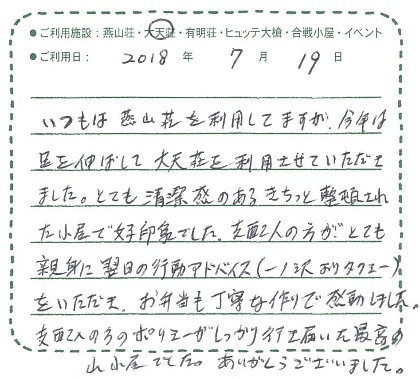 ●ご利用施設：燕山荘・大天荘・有明荘・ヒュッテ大槍・合戦小屋・イベント
●ご利用日： 2018 年 7 月 19 日
いつもは 燕山荘を利用してますが、今年は
足を伸ばして 大天荘を利用させていただき
ました。とても 清潔感のある きちっと整頓され
た小屋で好印象でした。支配人の方がとても
親身に翌日の行動アドバイス(一ノ沢よりタクシー)
をいただき、お弁当も丁寧な作りで感動しました。
支配人の方のポリシーがしっかり行き届いた最高の
山小屋でした。ありがとうございました。